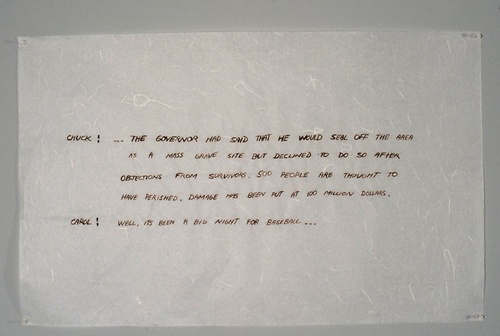 CHUCK: ... THE GOVERNOR HAD SAID THAT HE WOULD SEAL OFF THE AREA
AS A MASS GRAVE SITE BUT DECLINED TO DO SO AFTER
OBJECTIONS FROM SURVIVORS. 500 PEOPLE ARE THOUGHT TO
HAVE PERISHED. DAMAGE HAS BEEN PUT AT 100 MILLION DOLLARS.
CAROL: WELL, ITS BEEN A BIG NIGHT FOR BASEBALL ...